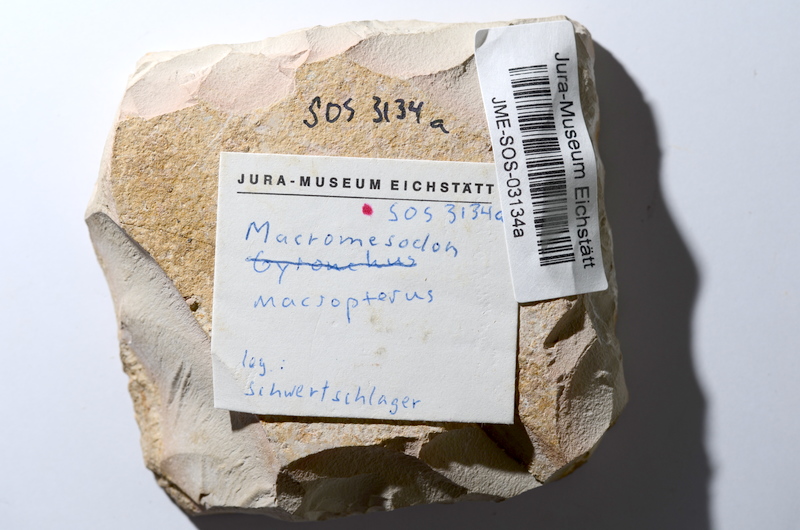 SOS 3134a
JURA-MUSEUM EICHSTÄTT
SOS 3134a
Macromesodon
Gyronchus
macropterus
leg.:
Schwertschlager
Jura-Museum Eichstätt
JME-SOS-03134a